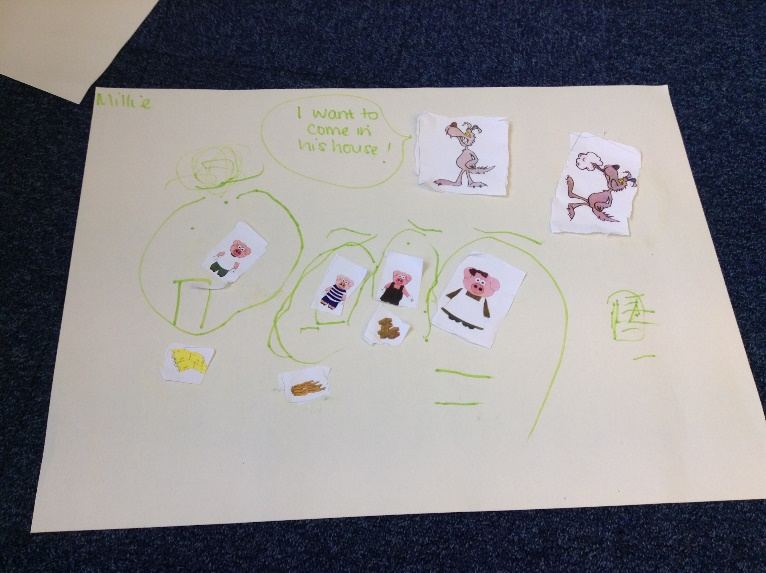 Millie
I want to
come in
his house!